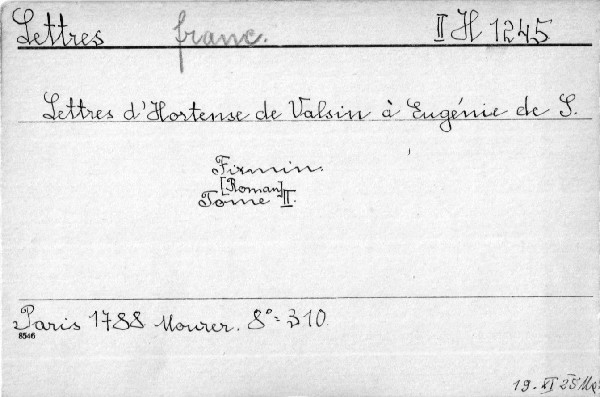 Lettres franc. II H 1245
Lettres d'Hortense de Valsin à Eugénie de S.
Firmin.
[Roman]
Tome II.
Paris 1788 Mourer. 8°= 310.
8546
19. XI 25